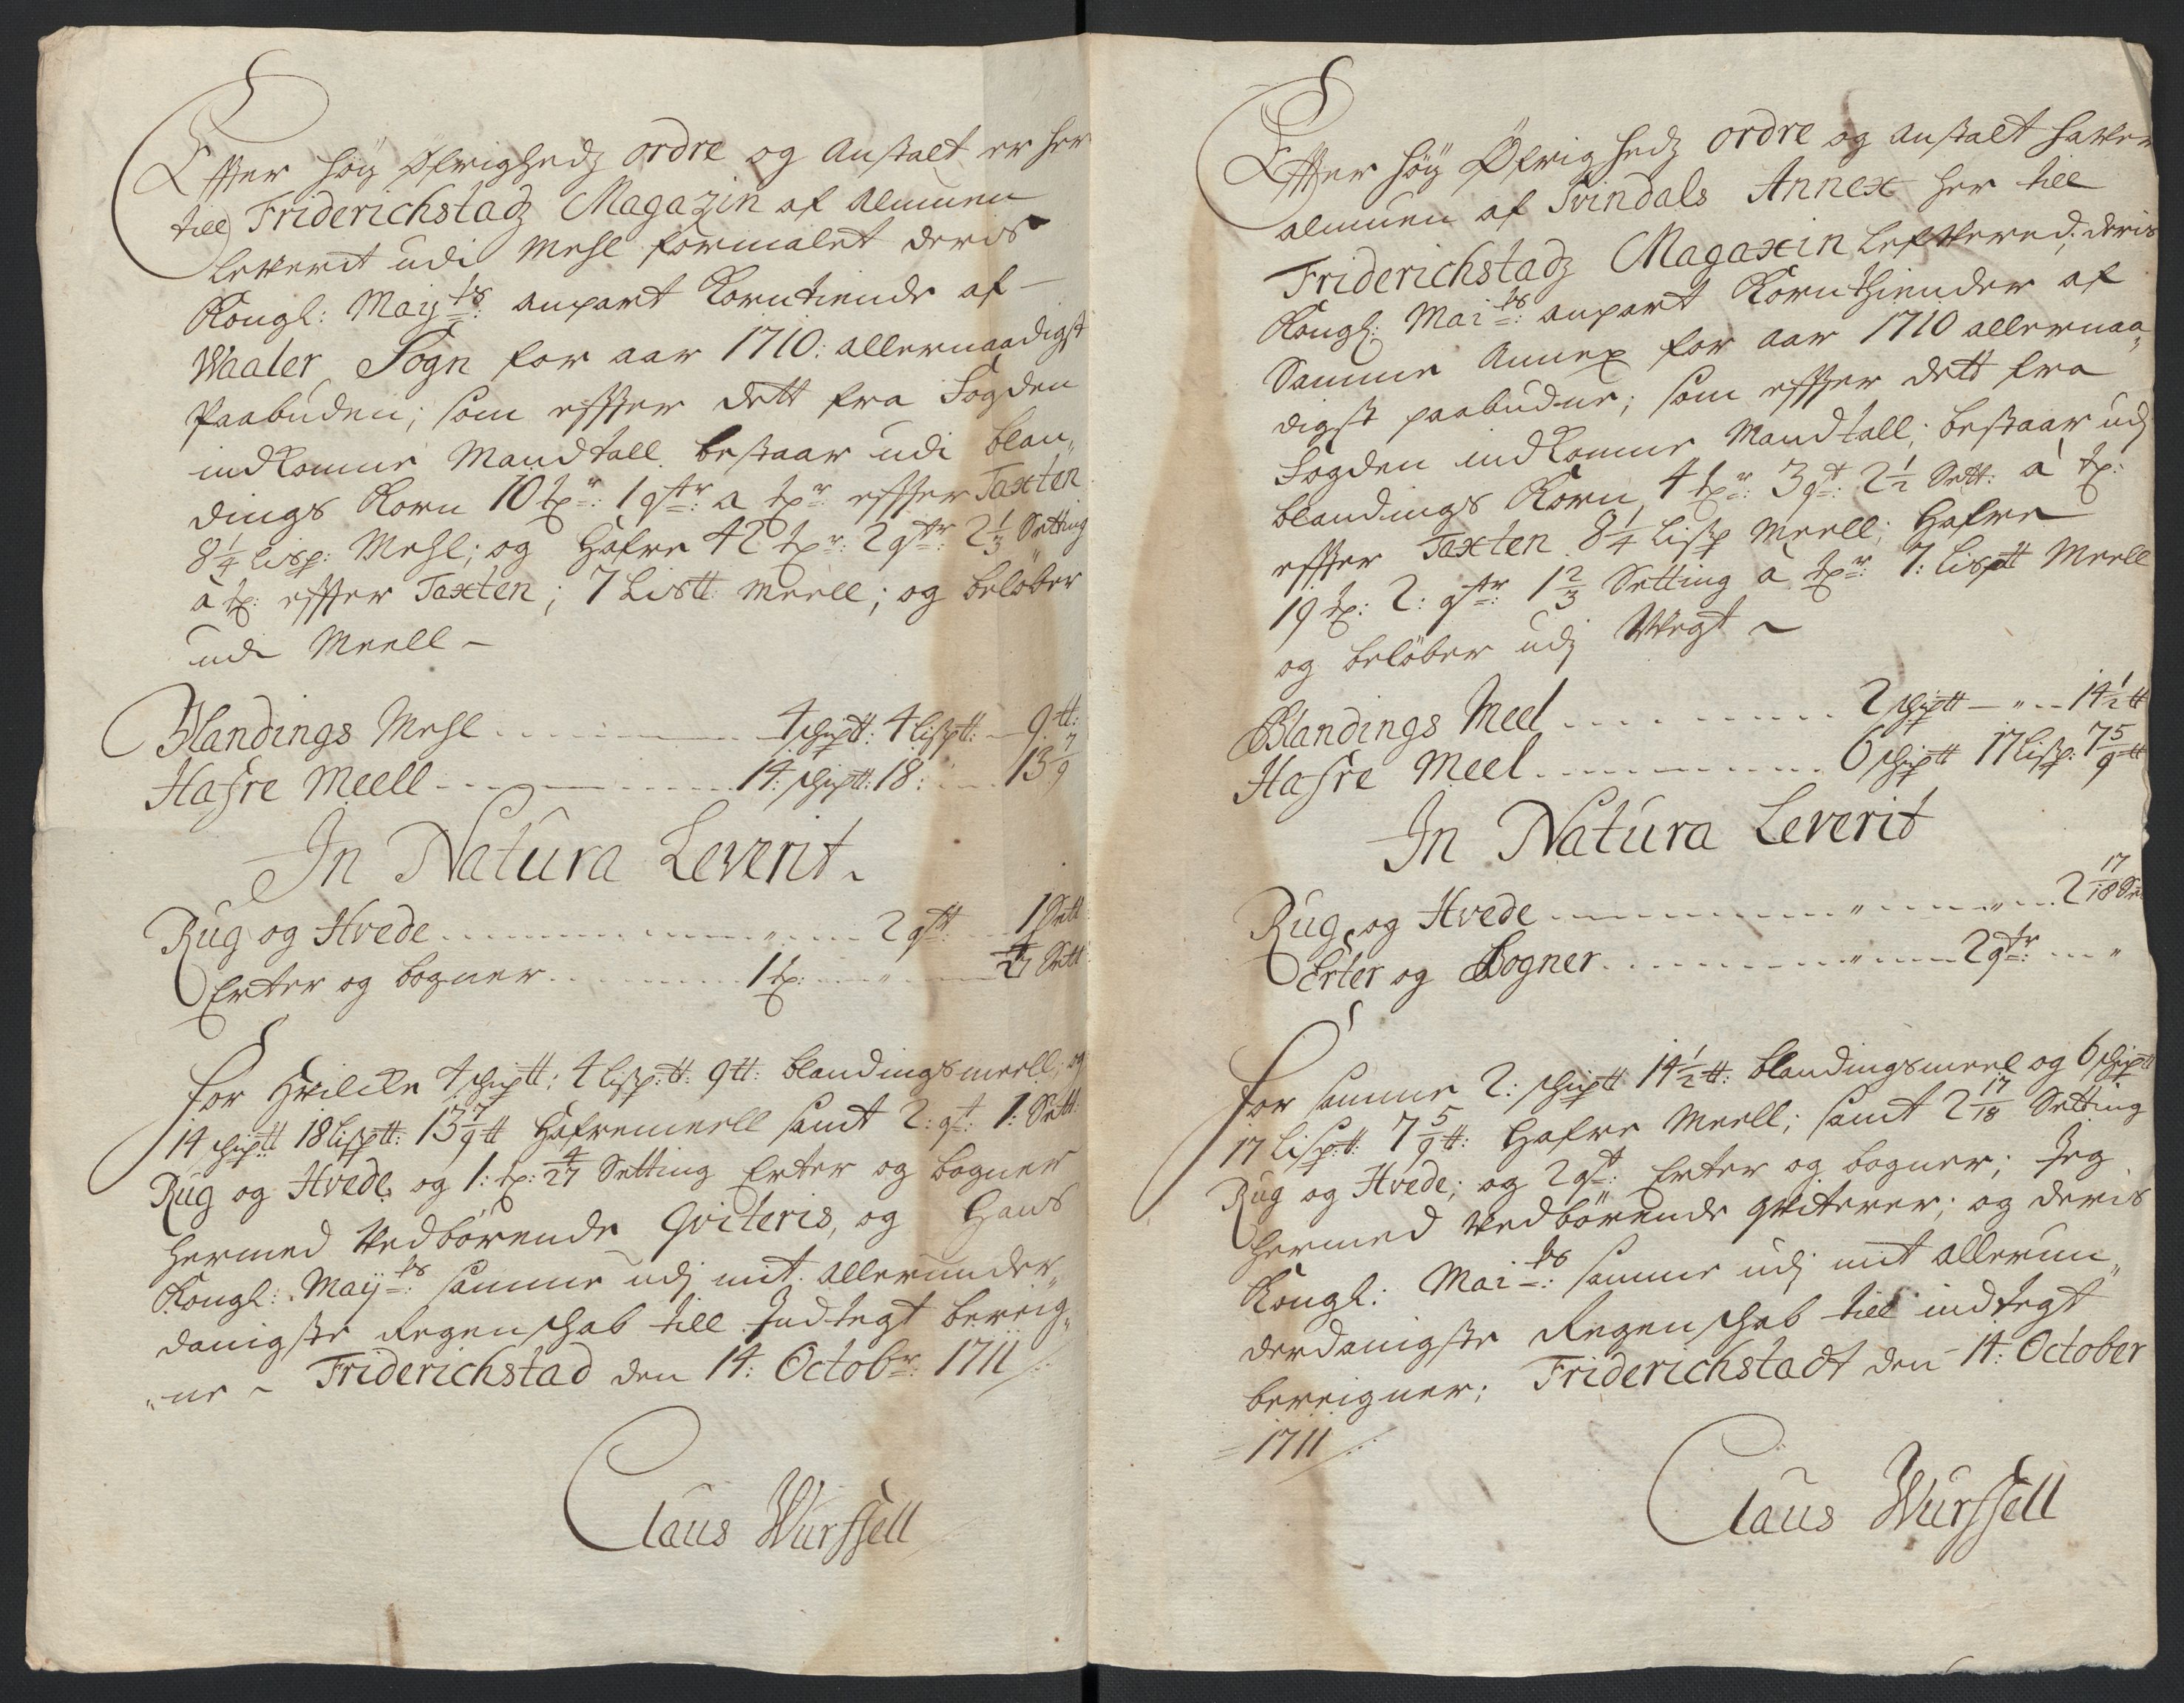 Effter höy Øfrigheds ordre og Anstalt er her
till Friderichstadz Magazin af Almuen
leverit udi Mehl formalet deris
Kongl: May.ts anpart Korntiende af
Waaler Sogn for aar 1710: allernaadigst
Paabuden; som effter dett fra Fogden
indkomne Mandtall bestaar udi blan„
dings Korn 10 tr: 1 qtr: a tr effter Taxten
8¼ Lisp: Mehl; og Hafre 42 tr: 2 qtr: 2⅓ Setting
à t: effter Taxten; 7 List: Meell; og belöber
udi Meell –
Blandings Mehl 4 schiptt: 4 lisptt: 9 tt:
Hafre Meell 14: schiptt: 18: 13 7/9
In Natura Leverit.
Rug og Hvede „ 2 qtr 1 Sett
Erter og bogner 1 t: „ 4/27 Sett
For Hvilcke 4 schiptt: 4 lisp:tt: 9 tt: blandingsmeell; og
14 schiptt 18 lisptt: 13 7/9 tt Hafremeell samt 2: qt: 1: Sett:
Rug og Hvede, og 1: t: 4/27 Setting Erter og bogner
hermed Vedbörende Qviteris, og Hans
Kongl: May.ts samme udj mit allerunder„
danigste Regenschab till Indtegt bereig„
„ne – Friderichstad den 14: Octobr: 1711
Claus Wurssell
Effter höy Øfrigheds ordre og anstalt haver
almuen af Svindals Annex her till
Friderichstadz Magaxin lefvered; deris
Kongl: Mai.ts anpart Kornthiender af
Samme Annex for aar 1710 allernaa„
digst paabudne; som effter dett fra
Fogden indkomne Mandtall; bestaar udj
blandings Korn 4 tr: 3 qt: 2½ Sett: à t:
effter Taxten 8¼ Lisp Meell; Hafre
19 t: 2: qtr: 1⅔ Setting a tr: 7: lisptt Meell
og belöber udj Vegt –
Blandings Meel 2 schiptt – „ 14½ tt
Hafre Meel 6 schiptt 17 lisp: 7 5/9 tt
In Natura Leverit
Rug og Hvede „ „ 2 17/18 Se
Erter og Bogner „ 2 qtr: „
For samme 2: schiptt 14½ tt: blandingsmeel og 6 schiptt
17 Lisp:tt: 7 5/9 tt: Hafre Meell; samt 2 17/18 Setting
Rug og Hvede; og 2 qt: Erter og bogner; Jeg
hermed Vedbörende qviterer; og deris
Kongl: Mai.ts: samme udj mit allerun„
derdanigste Regenschab till indtegt
bereigner; Friderichstadt den 14: October
1711
Claus Wurssell